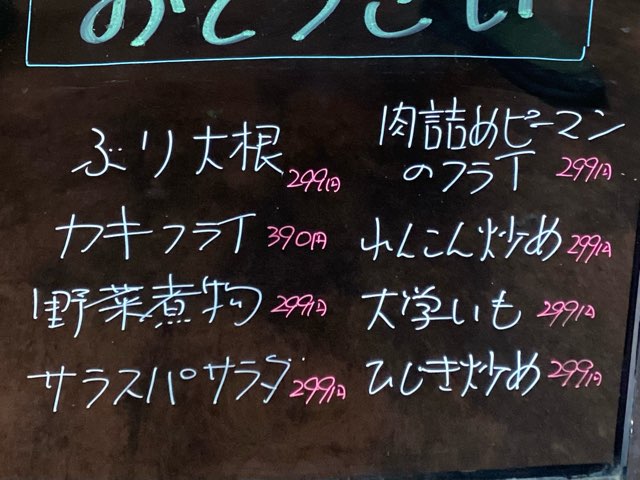 おそうざい
ぶり大根 299円
カキフライ 390円
野菜煮物 299円
サラスパサラダ 299円
肉詰めピーマン
のフライ 299円
れんこん炒め 299円
大学いも 299円
ひじき炒め 299円